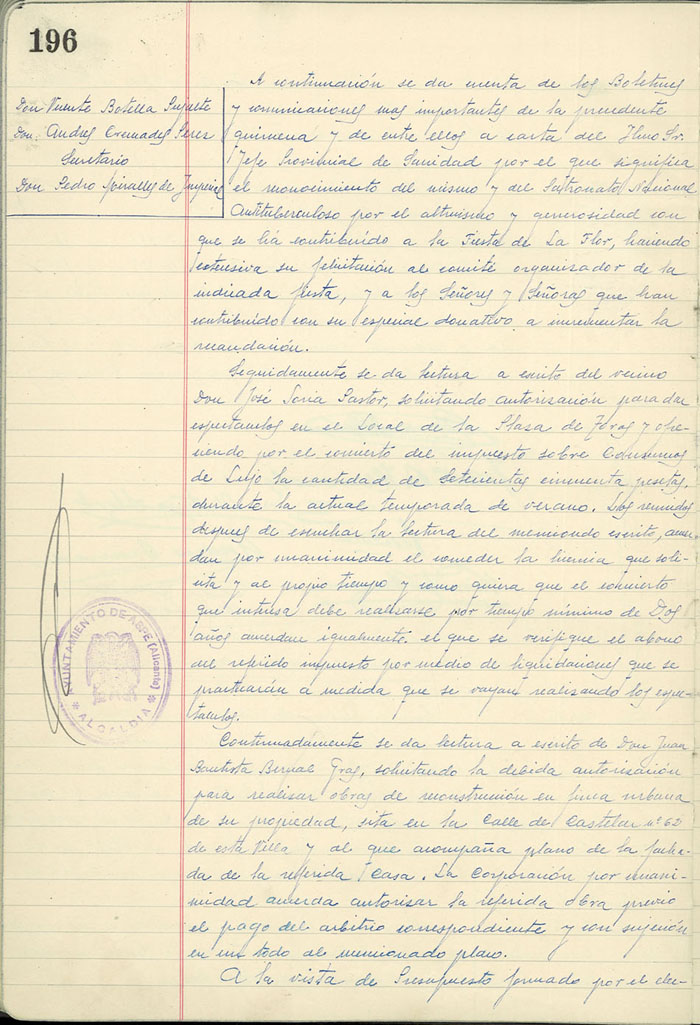 196
Don Vicente Botella
Don Andres Cremades Perez
Secretario
Don Pedro Miralles de Imperial
A continuación se da cuenta de los Boletines
y comunicaciones mas importantes de la precedente
quincena y de entre ellos a carta del Ilmo Sr.
Jefe Provincial de Sanidad por el que significa
el reconocimiento del mismo y del Patronato Nacional
Antituberculoso por el altruismo y generosidad con
que se há contribuido a la Fiesta de La Flor, haciendo
extensiva su felicitación al comité organizador de la
indicada fiesta, y a los Señores y Señoras que han
contribuido con su especial donativo a incrementar la
recaudación.
Seguidamente se da lectura a escrito del vecino
Don José Soria Pastor, solicitando autorización para dar
espectaculos en el Local de la Plaza de Toros y ofre-
ciendo por el concierto del impuesto sobre Consumos
de Lujo la cantidad de setecientas cincuenta pesetas,
durante la actual temporada de verano. Los reunidos
despues de escuchar la lectura del mencionado escrito, acuer-
dan por unanimidad el conceder la licencia que soli-
cita y al propio tiempo y como quiera que el concierto
que interesa debe realizarse por tiempo minimo de Dos
años acuerdan igualmente el que se verifique el abono
del referido impuesto por medio de liquidaciones que se
practicarán a medida que se vayan realizando los espec-
taculos.
Continuadamente se da lectura a escrito de Don Juan
Bautista Bernal Gras, solicitando la debida autorización
para realizar obras de reconstrucción en finca urbana
de su propiedad, sita en la Calle de Castelar nº 62
de esta Villa y al que acompaña plano de la facha-
da de la referida Casa. La Corporación por unani-
midad acuerda autorizar la referida obra previo
el pago del arbitrio correspondiente y con sujeción
en un todo al mencionado plano.
A la vista de Presupuesto formado por el elec-
AYUNTAMIENTO DE ASPE (Alicante)
* ALCALDIA *